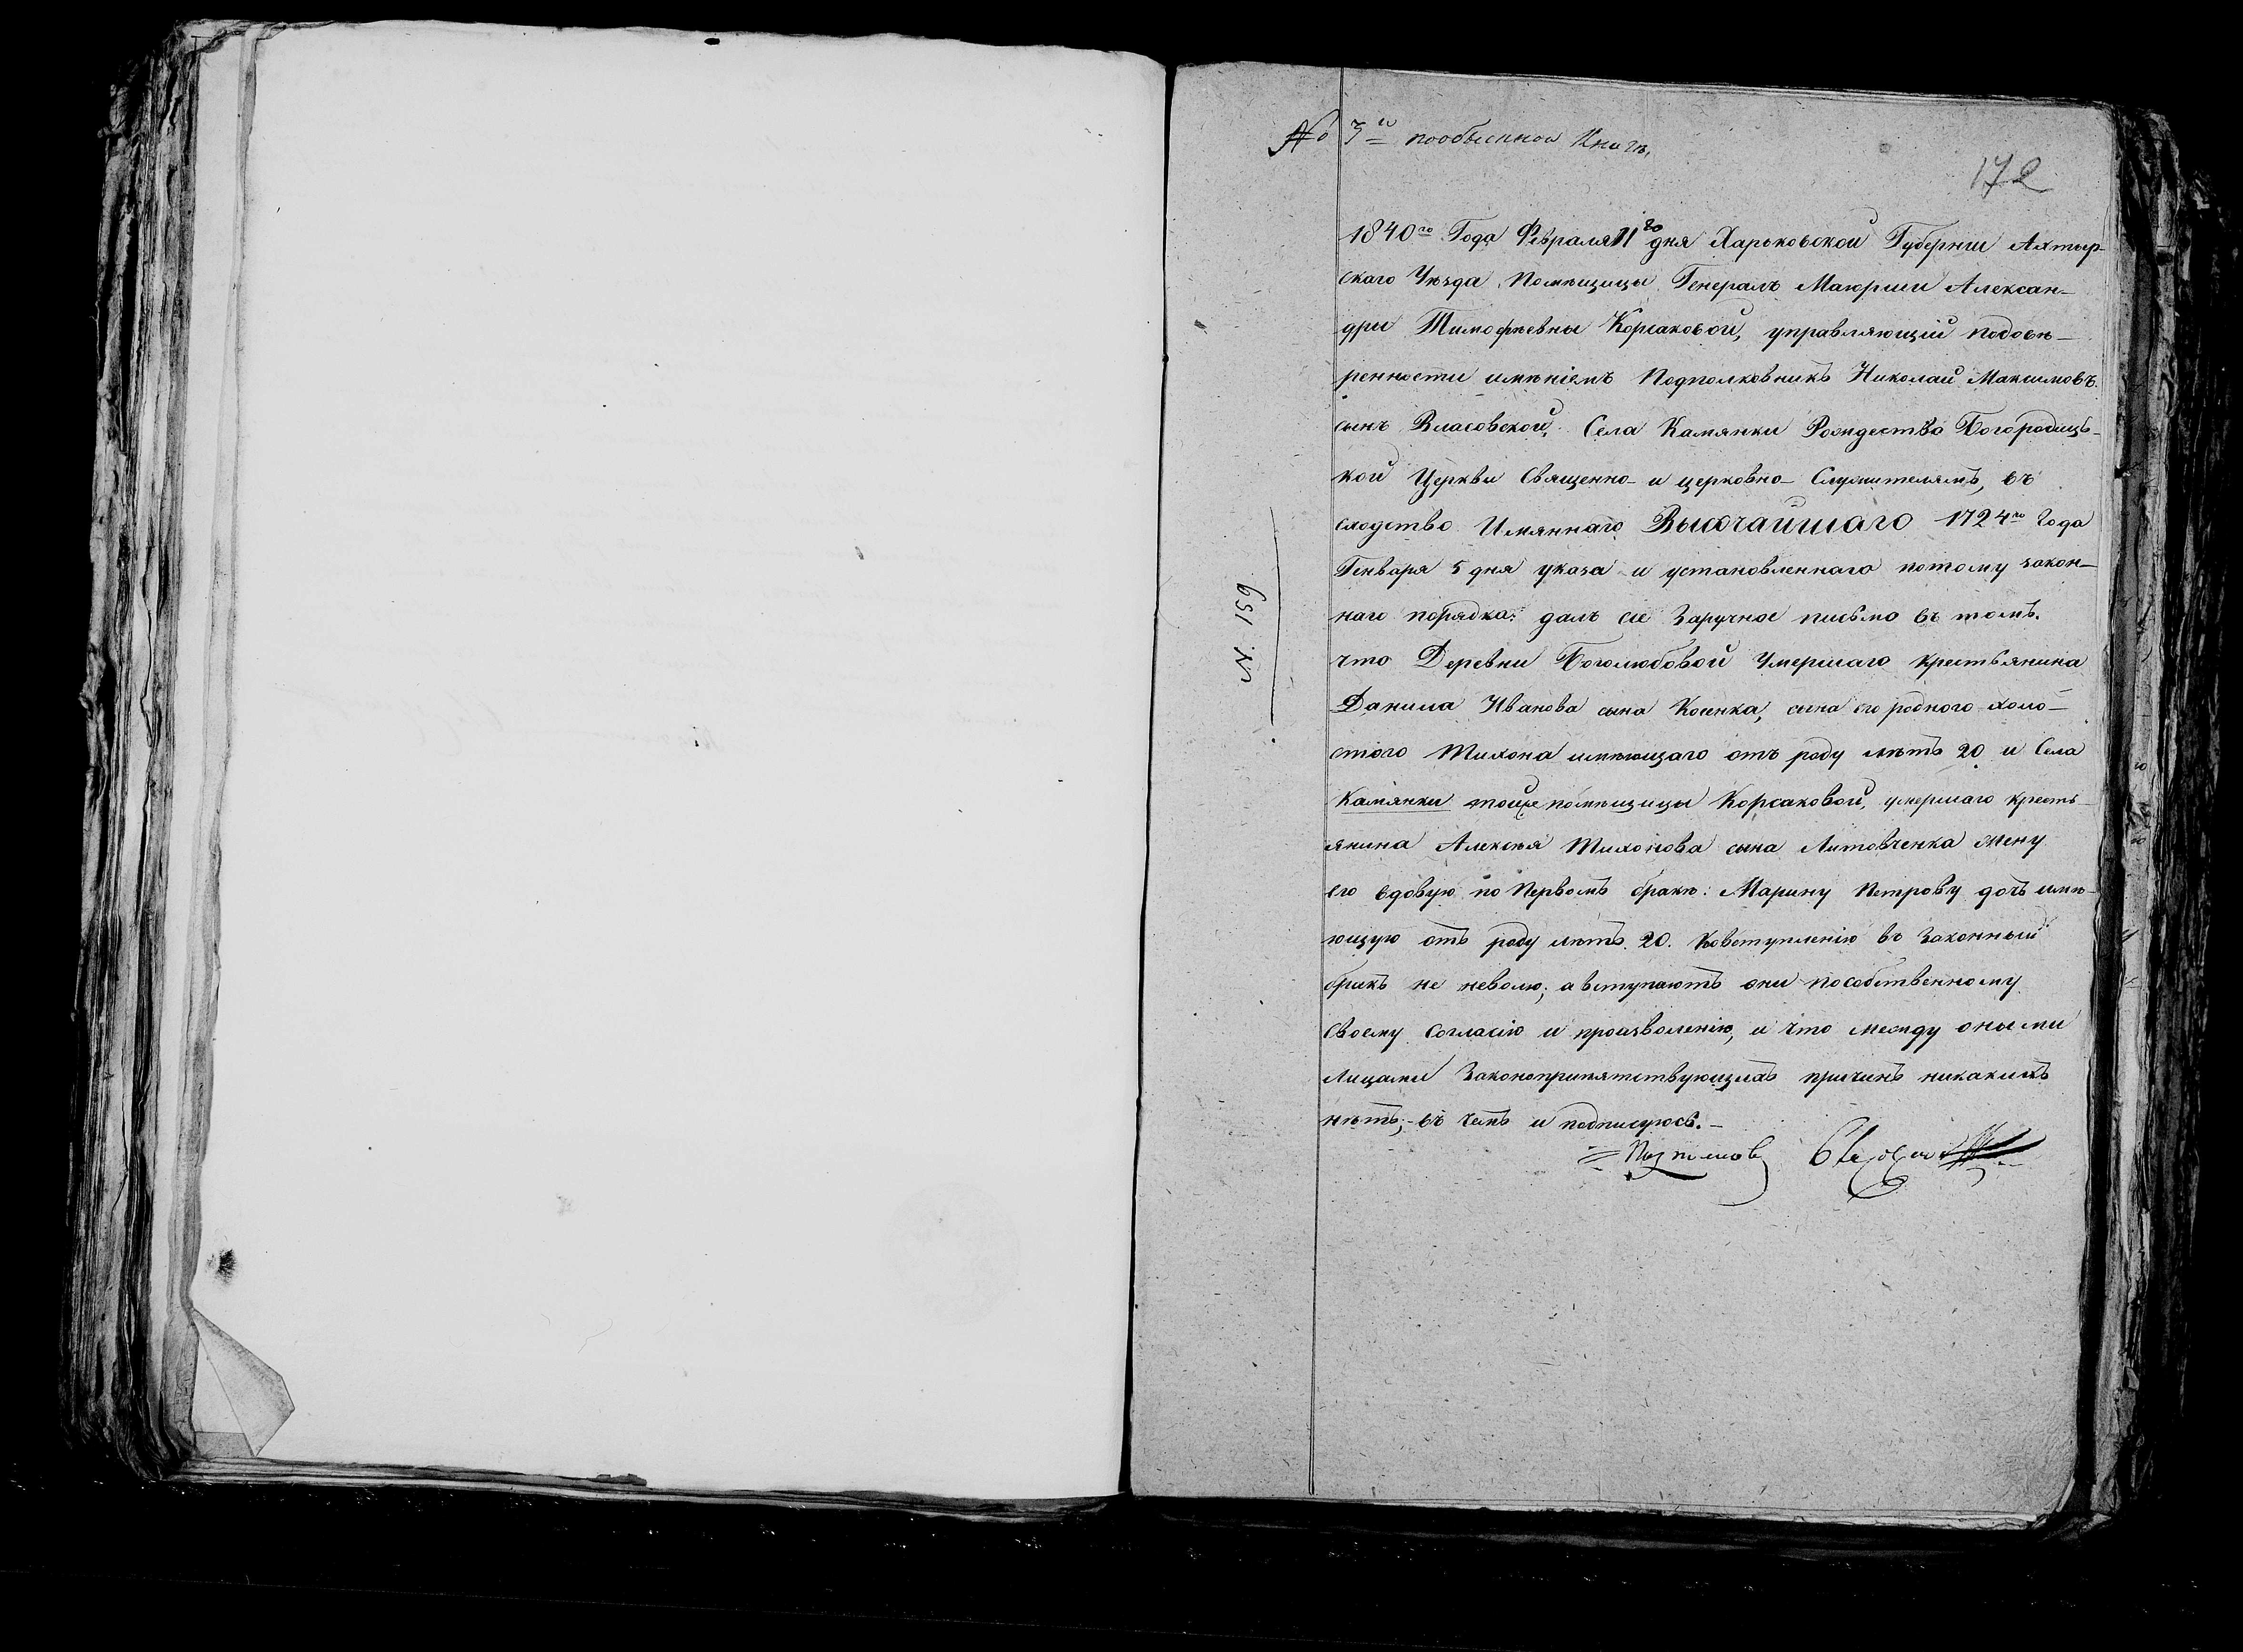 № 3й пообыскной Книгѣ,
172
1840го Года Февраля 11го дня Харьковской Губернiи Ахтыр-
скаго Уѣзда Помѣщицы Генералъ Маiорши Алексан-
дри Тимофѣевны Корсаковой, управляющiй подовѣ-
ренности имѣнiемъ Подполковникъ Николай Максимовъ
сынъ Власовской, Села Камянки Рождество Богородицъ-
кой Церкви Священно- и церковно- Служителямъ, въ
сходство Имяннаго Высочайшаго 1724го Года
Генваря 5 дня указа и установленнаго потому закон-
наго порядка: далъ сiе Заручное письмо въ томъ.
что Деревни Боголюбовой Умершаго крестьянина
Данила Иванова сына Косенка, сына его родного холо-
стого Тихона имѣющаго отъ роду лѣтъ 20 и Села
Камянки тойже помѣщицы Корсаковой, умершаго кресть-
янина Алексѣя Тихонова сына Литовченка жену
его вдовую по Первомъ бракѣ: Марину Петрову дочь имѣ-
ющую отъ роду лѣтъ. 20. Ковступленiю въ Законный
бракъ не неволю; а вступаютъ они пособственному
Своему Согласiю и произволенiю, и что между оными
Лицами Законопрепятствующихъ причинъ никакихъ
нѣтъ;- въ чемъ и подписуюсь.-
N. 159